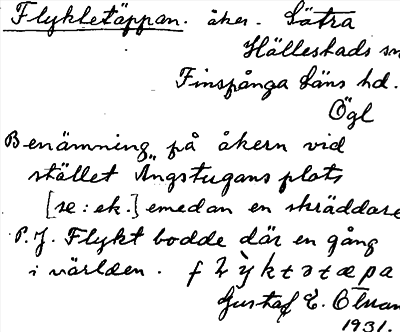 Flykletäppan. åker. Sätra
Hällestads sn
Finspånga läns hd.
Ögl
Benämning på åkern vid
stället Ängstugans plats
[se: ek.] emedan en skräddare
P. J. Flykt bodde där en gång
i världen.
Gustaf E.
1931.